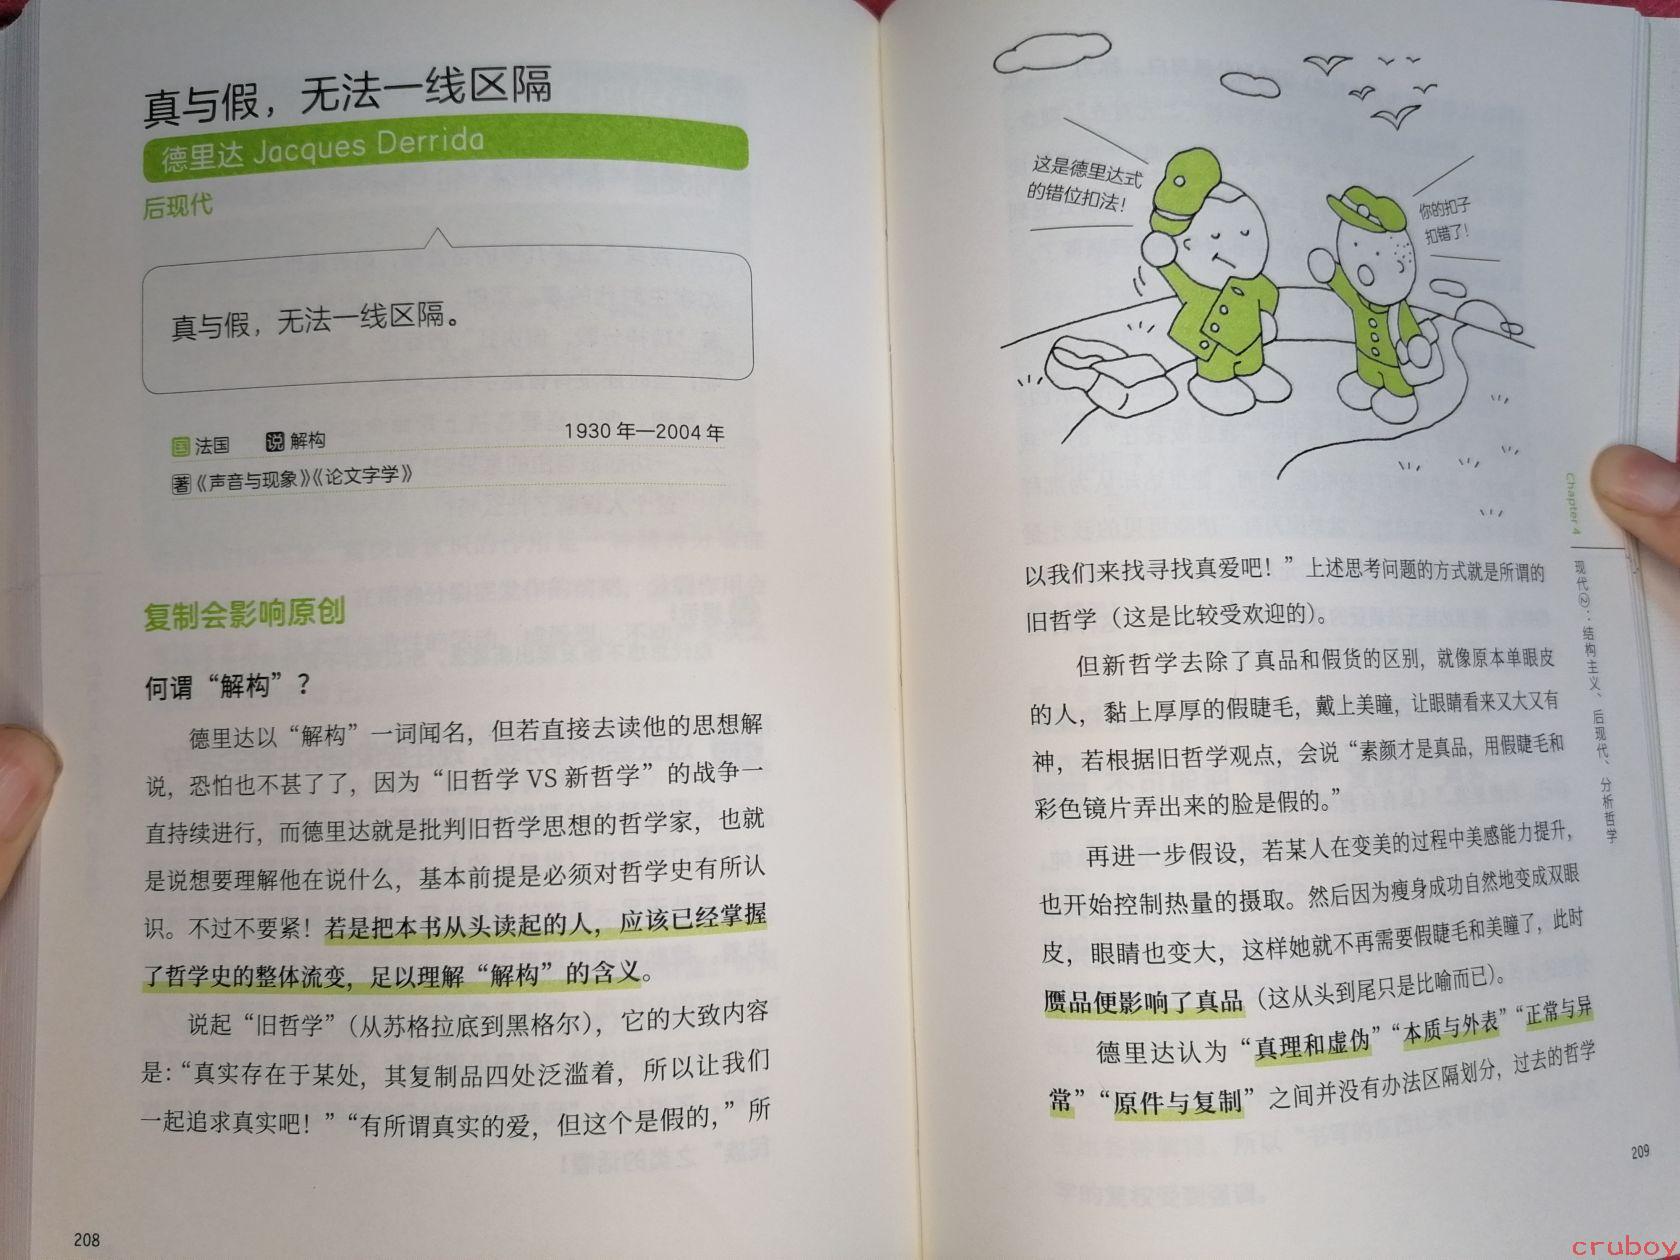 真与假，无法一线区隔
德里达 Jacques Derrida
后现代
真与假，无法一线区隔。
国 法国 说 解构 1930 年—2004 年
著《声音与现象》《论文字学》
复制会影响原创
何谓“解构”？
德里达以“解构”一词闻名，但若直接去读他的思想解
说，恐怕也不甚了了，因为“旧哲学 VS 新哲学”的战争一
直持续进行，而德里达就是批判旧哲学思想的哲学家，也就
是说想要理解他在说什么，基本前提是必须对哲学史有所认
识。不过不要紧！若是把本书从头读起的人，应该已经掌握
了哲学史的整体流变，足以理解“解构”的含义。
说起“旧哲学”（从苏格拉底到黑格尔），它的大致内容
是：“真实存在于某处，其复制品四处泛滥着，所以让我们
一起追求真实吧！”“有所谓真实的爱，但这个是假的，”所
208
这是德里达式
的错位扣法！
你的扣子
扣错了！
以我们来找寻找真爱吧！”上述思考问题的方式就是所谓的
旧哲学（这是比较受欢迎的）。
但新哲学去除了真品和假货的区别，就像原本单眼皮
的人，黏上厚厚的假睫毛，戴上美瞳，让眼睛看来又大又有
神，若根据旧哲学观点，会说“素颜才是真品，用假睫毛和
彩色镜片弄出来的脸是假的。”
再进一步假设，若某人在变美的过程中美感能力提升，
也开始控制热量的摄取。然后因为瘦身成功自然地变成双眼
皮，眼睛也变大，这样她就不再需要假睫毛和美瞳了，此时
赝品便影响了真品（这从头到尾只是比喻而已）。
德里达认为“真理和虚伪”“本质与外表”“正常与异
常”“原件与复制”之间并没有办法区隔划分，过去的哲学
Chapter 4
现代②：结构主义、后现代、分析哲学
209
cruboy